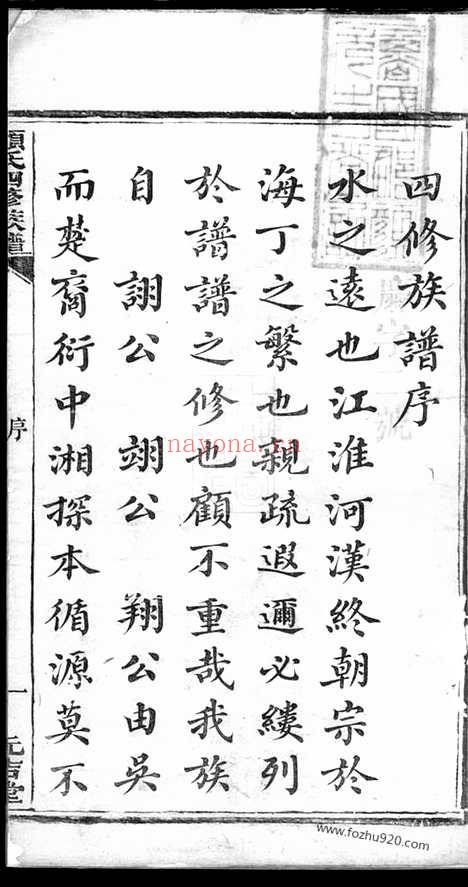 四修族譜序
水之遠也江淮河漢終朝宗於
海丁之繁也親疏遐邇必縷列
於譜譜之修也顧不重哉我族
自 詡公 翊公 翔公由吳
而楚裔衍中湘探本循源莫不
顏氏四修族譜
序
一
nayona.cn
www.fozhu920.com